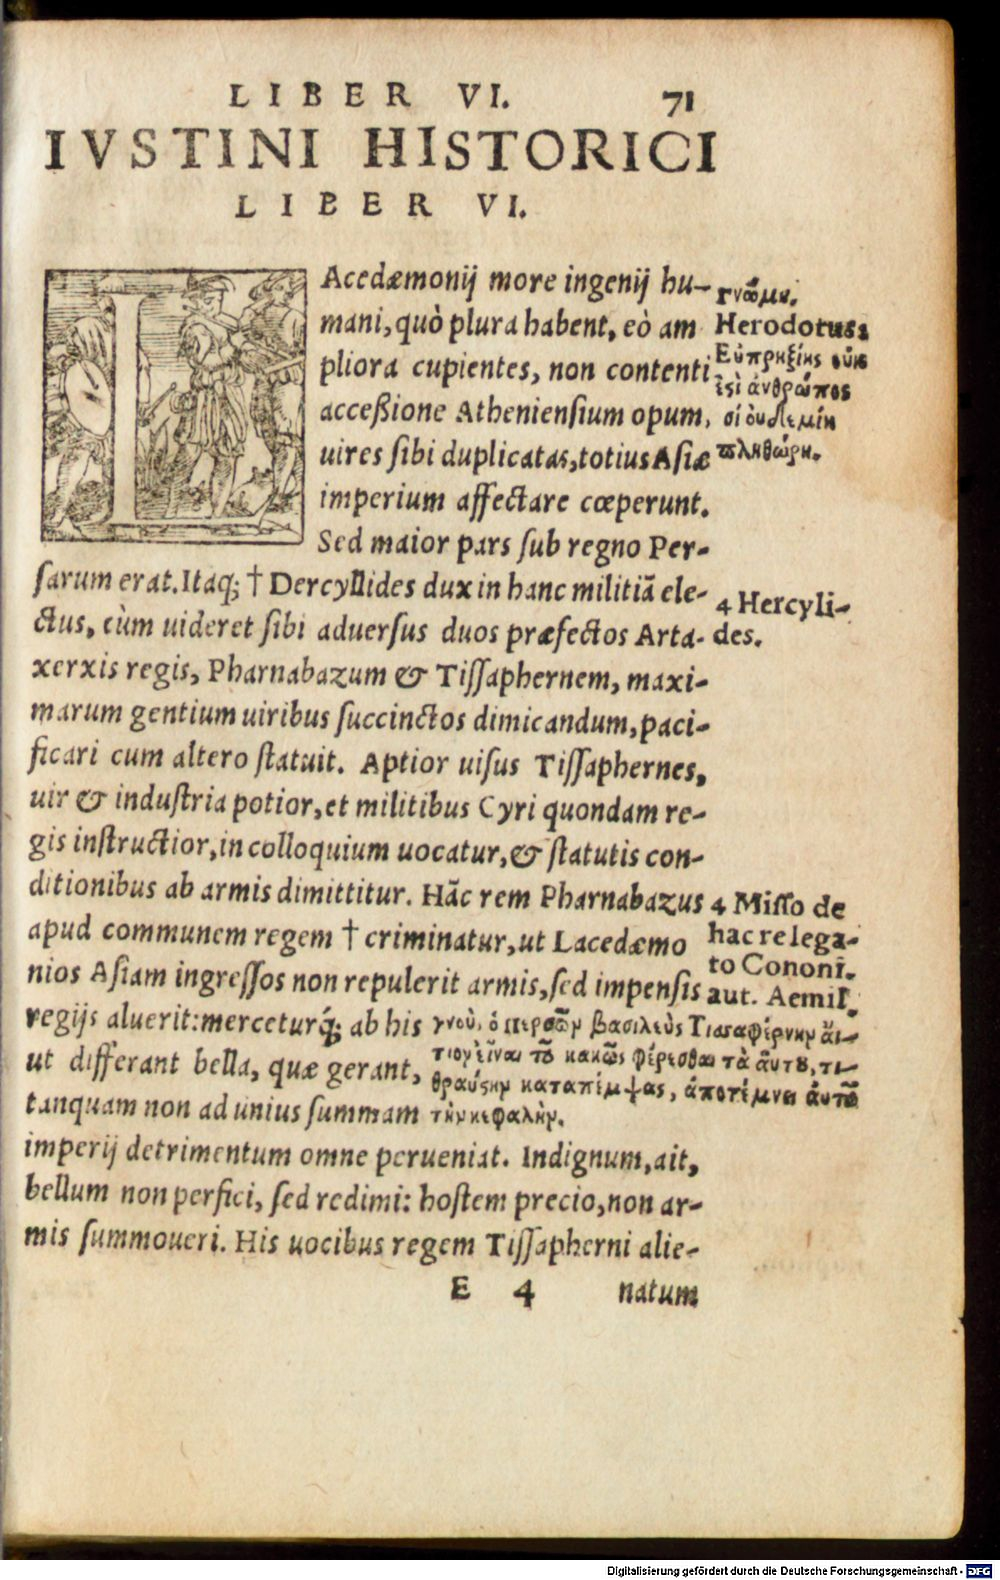 LIBER VI. 71
IVSTINI HISTORICI
LIBER VI.
LAcedæmonij more ingenij hu-
mani, quò plura habent, eò am
pliora cupientes, non contenti
acceßione Atheniensium opum,
uires sibi duplicatas, totius Asiæ
imperium affectare cœperunt.
Sed maior pars sub regno Per-
sarum erat. Itaq; † Dercyllides dux in hanc militiã ele-
ctus, cùm uideret sibi aduersus duos præfectos Arta-
xerxis regis, Pharnabazum & Tissaphernem, maxi-
marum gentium uiribus succinctos dimicandum, paci-
ficari cum altero statuit. Aptior uisus Tissaphernes,
uir & industria potior, et militibus Cyri quondam re-
gis instructior, in colloquium uocatur, & statutis con-
ditionibus ab armis dimittitur. Hãc rem Pharnabazus
apud communem regem † criminatur, ut Lacedæmo
nios Asiam ingressos non repulerit armis, sed impensis
regijs aluerit: merceturq́; ab his
ut differant bella, quæ gerant,
tanquam non ad unius summam
imperij detrimentum omne perueniat. Indignum, ait,
bellum non perfici, sed redimi: hostem precio, non ar-
mis summoueri. His uocibus regem Tissapherni alie-
E 4 natum
Γνώμη.
Herodotus:
Εὐπρηξίης οὐκ
ἐστὶ ἀνθρώποισι οὐδεμίη
πληθώρη.
4 Hercyli-
des.
4 Misso de
hac re lega-
to Conone.
aut. Aemil.
γνοὺς ὁ περσῶν βασιλεὺς Τισσαφέρνην αἴ-
τιον εἶναι τοῦ κακῶς φέρεσθαι τὰ αὑτοῦ, τι-
θραύστην καταπέμψας, ἀποτέμνει αὐτοῦ
τὴν κεφαλήν.
Digitalisierung gefördert durch die Deutsche Forschungsgemeinschaft - DFG